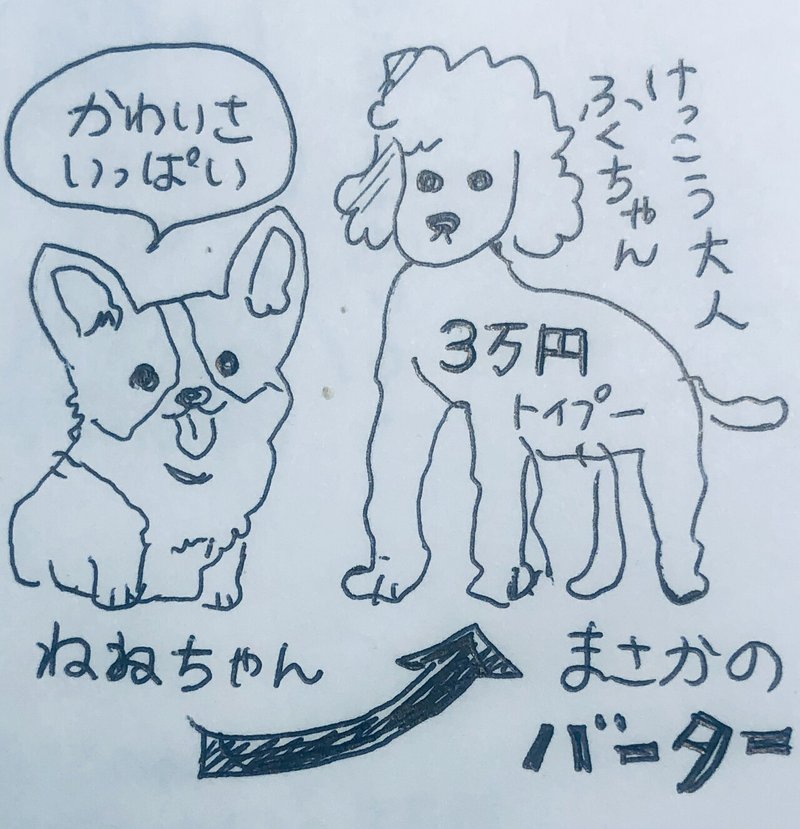 かわいさ
いっぱい
けっこう大人
ふくちゃん
3万円
トイプー
ねねちゃん
まさかの
バーター